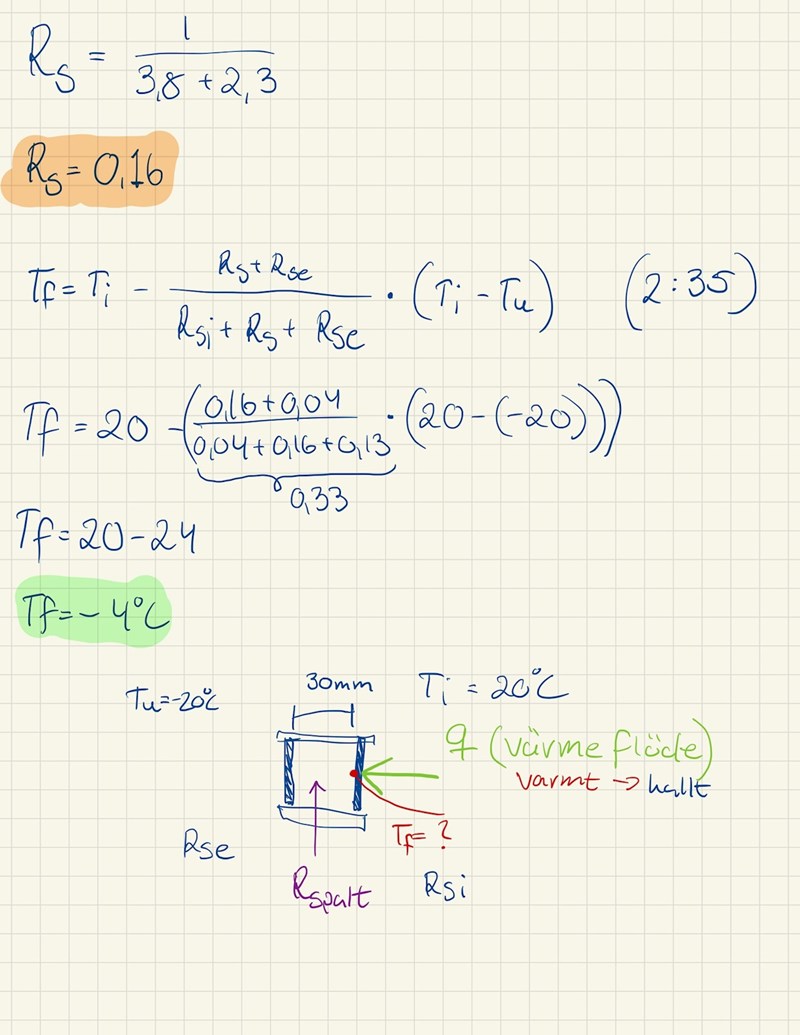 R_s = 1 / (3,8 + 2,3)
R_s = 0,16
T_f = T_i - (R_s + R_se) / (R_si + R_s + R_se) · (T_i - T_u) (2:35)
T_f = 20 - ((0,16 + 0,04) / (0,04 + 0,16 + 0,13) · (20 - (-20)))
0,33
T_f = 20 - 24
T_f = - 4°C
30mm
T_u = -20°C
T_i = 20°C
q (värme flöde)
varmt → kallt
T_f = ?
R_se
R_spalt
R_si